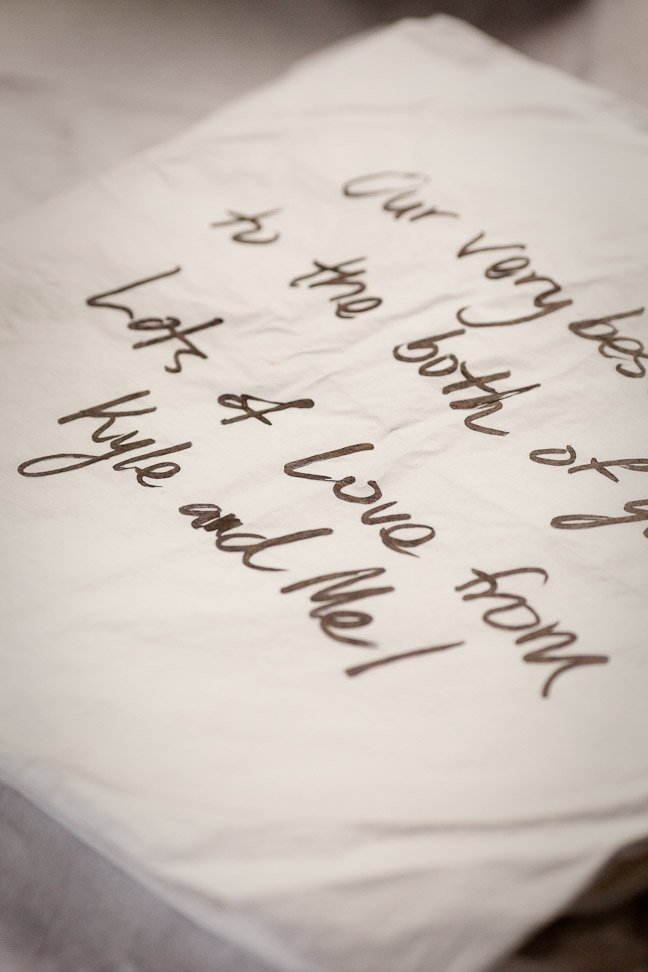 Our very bes
to the both of y
Lots of Love from
Kyle and Me!